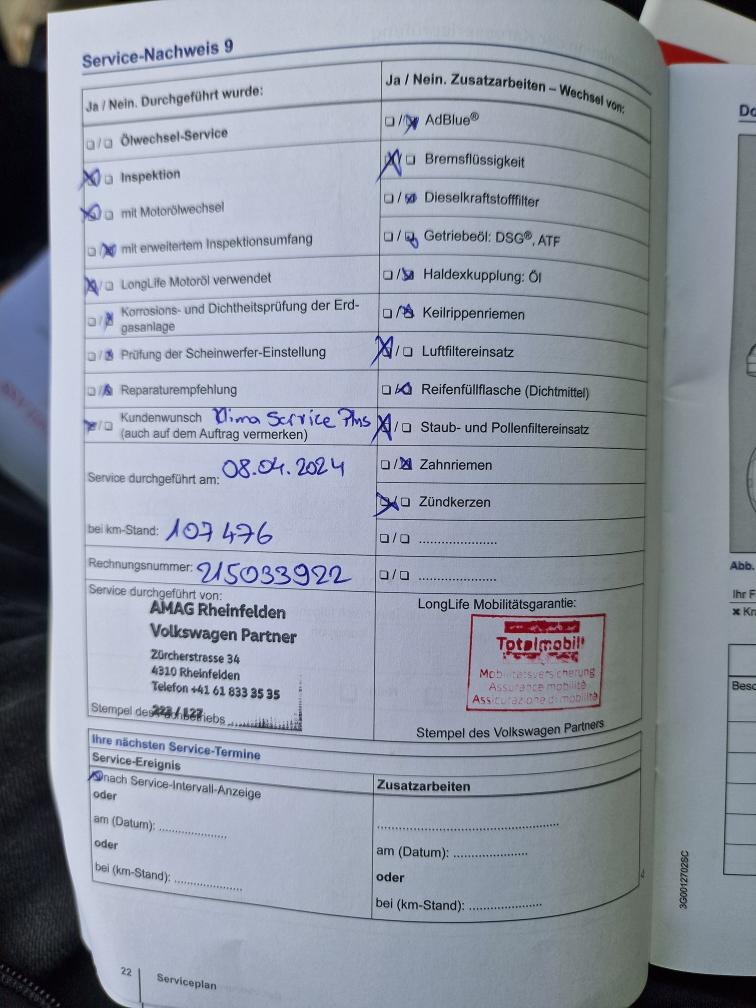 Service-Nachweis 9
Ja / Nein. Durchgeführt wurde:
❑ / ❑ Ölwechsel-Service
❑ Inspektion
❑ mit Motorölwechsel
❑ / mit erweitertem Inspektionsumfang
/ ❑ LongLife Motoröl verwendet
❑ / Korrosions- und Dichtheitsprüfung der Erd-
gasanlage
❑ / Prüfung der Scheinwerfer-Einstellung
❑ / Reparaturempfehlung
/ ❑ Kundenwunsch Klima Service Plus
(auch auf dem Auftrag vermerken)
Service durchgeführt am: 08.04.2024
bei km-Stand: 107 476
Rechnungsnummer: 215033922
Service durchgeführt von:
AMAG Rheinfelden
Volkswagen Partner
Zürcherstrasse 34
4310 Rheinfelden
Telefon +41 61 833 35 35
Stempel des
Ja / Nein. Zusatzarbeiten – Wechsel von:
❑ / AdBlue®
❑ Bremsflüssigkeit
❑ / Dieselkraftstofffilter
❑ / Getriebeöl: DSG®, ATF
❑ / Haldexkupplung: Öl
❑ / Keilrippenriemen
/ ❑ Luftfiltereinsatz
❑ / Reifenfüllflasche (Dichtmittel)
/ ❑ Staub- und Pollenfiltereinsatz
❑ / Zahnriemen
❑ Zündkerzen
❑ / ❑ ......................
❑ / ❑ ......................
LongLife Mobilitätsgarantie:
Totalmobil!
Mobilitätsversicherung
Assurance mobilité
Assicurazione di mobilità
Stempel des Volkswagen Partners
Ihre nächsten Service-Termine
Service-Ereignis
nach Service-Intervall-Anzeige
oder
am (Datum): ...................
oder
bei (km-Stand): ...................
Zusatzarbeiten
..................................................
am (Datum): ....................
oder
bei (km-Stand): ....................
22 Serviceplan
3G0012702SC
Do
Abb.
Ihr F
✖ Kr
Besc